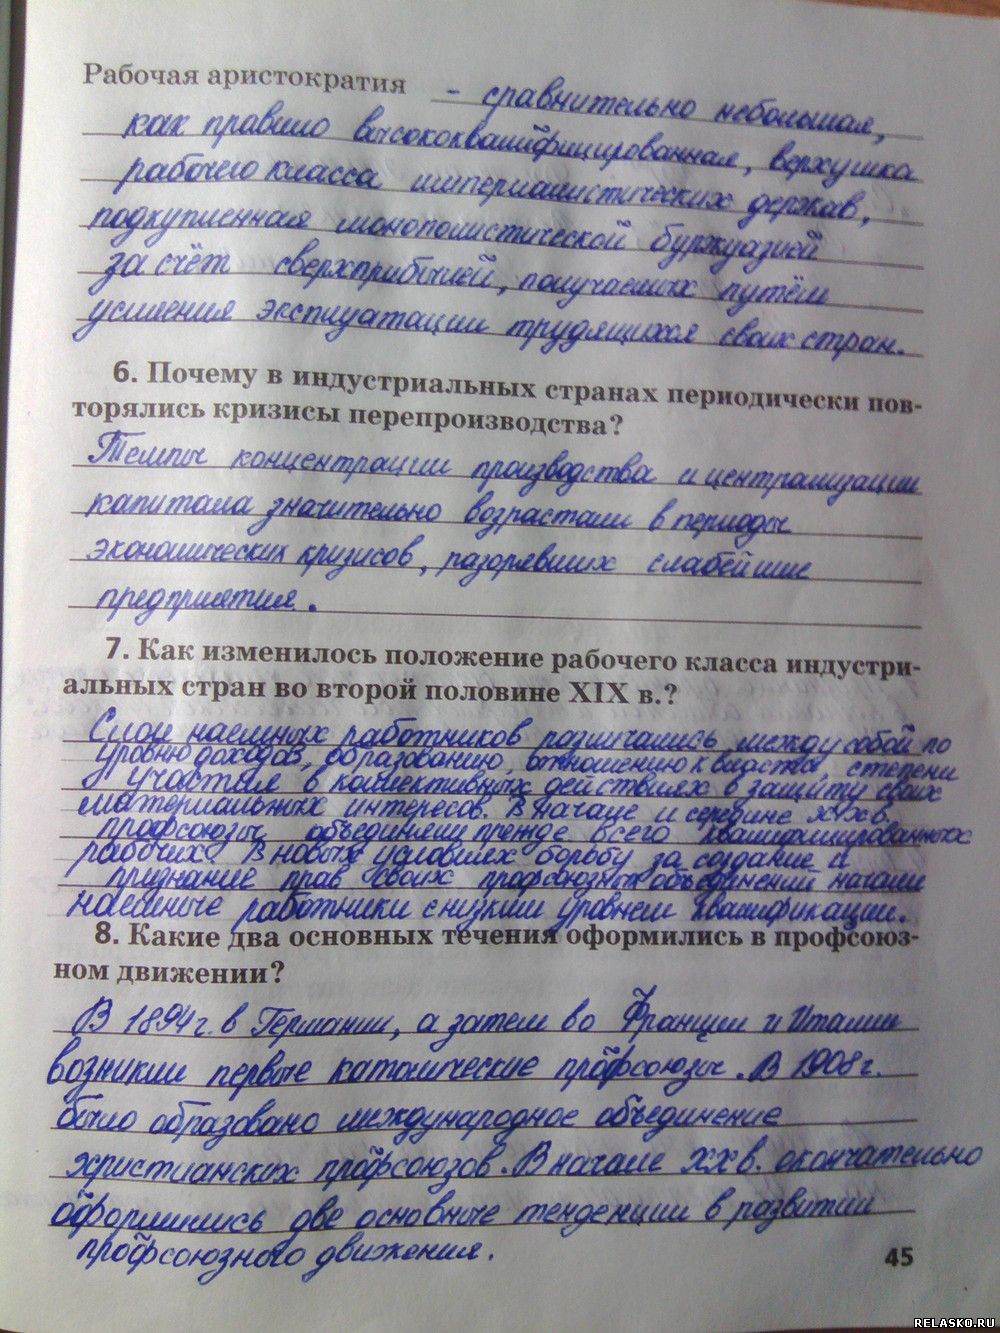 Рабочая аристократия - сравнительно небольшая,
как правило высококвалифицированная, верхушка
рабочего класса империалистических держав,
подкупленная монополистической буржуазией
за счёт сверхприбылей, получаемых путём
усиления эксплуатации трудящихся своих стран.
6. Почему в индустриальных странах периодически пов-
торялись кризисы перепроизводства?
Темпы концентрации производства и централизации
капитала значительно возрастали в периоды
экономических кризисов, разорявших слабейшие
предприятия.
7. Как изменилось положение рабочего класса индустри-
альных стран во второй половине XIX в.?
Слои наемных работников различались между собой по
уровню доходов, образованию, отношению к власти, степени
участия в коллективных действиях в защиту своих
материальных интересов. В начале и середине XIX в.
профсоюзы объединяли прежде всего квалифицированных
рабочих. В новых условиях борьбу за создание и
признание прав своих профсоюзных объединений начали
наемные работники с низким уровнем квалификации.
8. Какие два основных течения оформились в профсоюз-
ном движении?
В 1894 г. в Германии, а затем во Франции и Италии
возникли первые католические профсоюзы. В 1908 г.
было образовано международное объединение
христианских профсоюзов. В начале XX в. окончательно
оформились две основные тенденции в развитии
профсоюзного движения.
45
RELASKO.RU